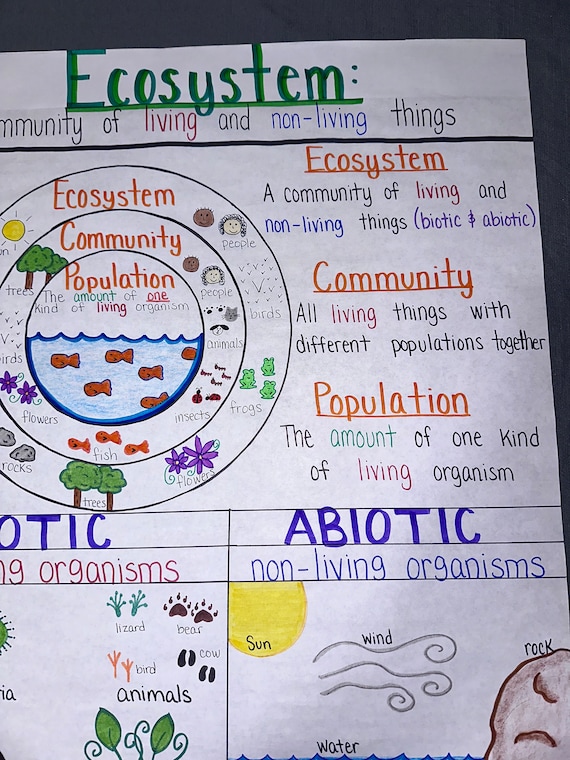 Ecosystem:
mmunity of living and non-living things
Ecosystem
A community of living and
non-living things (biotic & abiotic)
Community
All living things with
different populations together
Population
The amount of one kind
of living organism
Ecosystem
Community
Population
The amount of one
kind of living organism
people
people
un
trees
birds
animals
irds
flowers
insects
frogs
rocks
fish
flowers
trees
OTIC
ng organisms
lizard
bear
bird
cow
ia
animals
ABIOTIC
non-living organisms
Sun
wind
rock
water